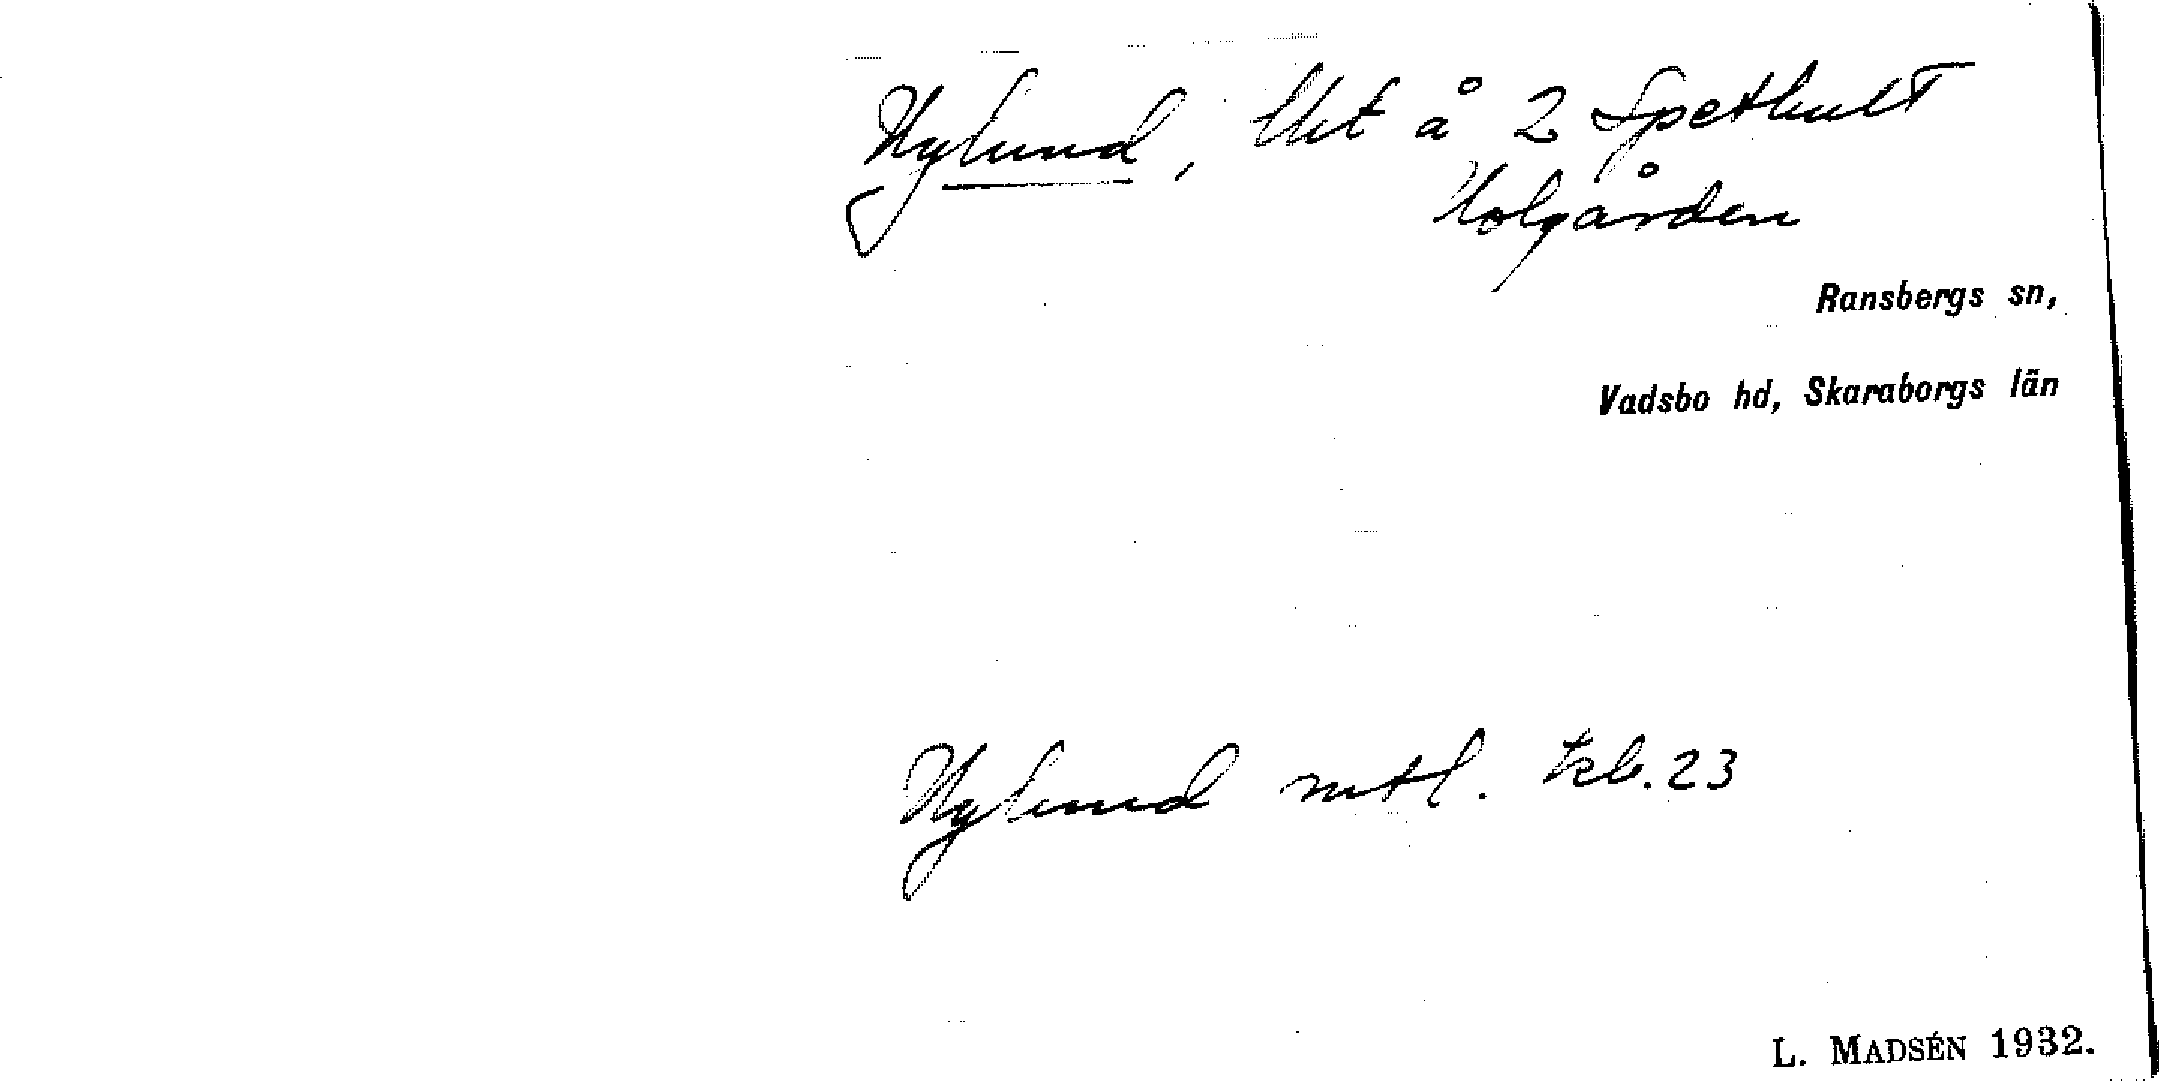 Nylund, lht å 2 Spethult
Holgården
Ransbergs sn,
Vadsbo hd, Skaraborgs län
Nylund mtl. Ekb. 23
L. MADSÉN 1932.